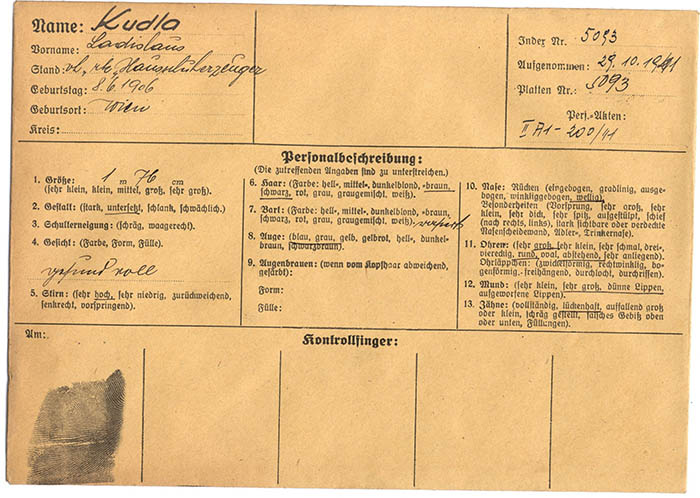 Name: Kudla
Vorname: Ladislaus
Stand: vh., rk.,
Geburtstag: 8.6.1906
Geburtsort: Wien
Kreis:
Index Nr. 5093
Aufgenommen: 29.10.1941
Platten Nr.: 5093
Pers.-Akten:
II A1-200/41
Personalbeschreibung:
(Die zutreffenden Angaben sind zu unterstreichen.)
1. Größe: 1 m 76 cm
(sehr klein, klein, mittel, groß, sehr groß).
2. Gestalt: (stark, untersetzt, schlank, schwächlich).
3. Schulterneigung: (schräg, waagerecht).
4. Gesicht: (Farbe, Form, Fülle).
gesund voll
5. Stirn: (sehr hoch, sehr niedrig, zurückweichend,
senkrecht, vorspringend).
6. Haar: (Farbe: hell-, mittel-, dunkelblond, -braun,
schwarz, rot, grau, graugemischt, weiß).
7. Bart: (Farbe: hell-, mittel-, dunkelblond, -braun,
schwarz, rot, grau, graugemischt, weiß).
8. Auge: (blau, grau, gelb, gelbrot, hell-, dunkel-
braun, schwarzbraun).
9. Augenbrauen: (wenn vom Kopfhaar abweichend,
gefärbt):
Form:
Fülle:
10. Nase: Rücken (eingebogen, gradlinig, ausge-
bogen, winkliggebogen, wellig).
Besonderheiten (Vorsprung, sehr groß, sehr
klein, sehr dick, sehr spitz, aufgestülpt, schief
(nach rechts, links), stark sichtbare oder verdeckte
Nasenscheidewand, Adler-, Trinkernase).
11. Ohren: (sehr groß, sehr klein, sehr schmal, drei-,
viereckig, rund, oval, abstehend, sehr anliegend).
Ohrläppchen: (zwickelförmig, rechtwinklig, bo-
genförmig-freihängend, durchlocht, durchrissen).
12. Mund: (sehr klein, sehr groß, dünne Lippen,
aufgeworfene Lippen).
13. Zähne: (vollständig, lückenhaft, auffallend groß
oder klein, schräg gestellt, falsches Gebiß oben
oder unten, Füllungen).
Am:
Kontrollfinger: